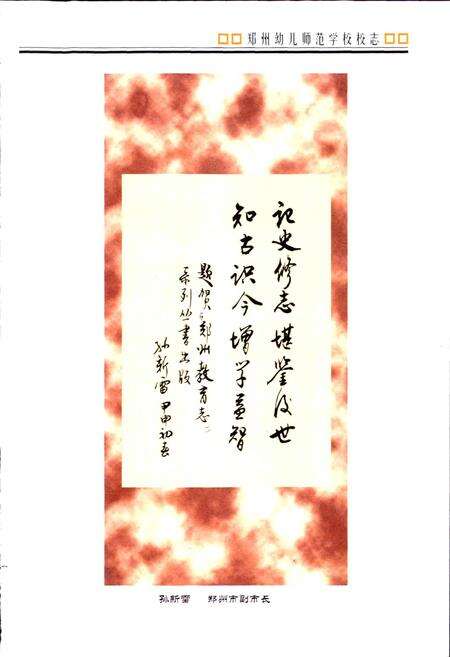 郑州幼儿师范学校校志
记史修志堪鉴后世
知古识今增学益智
题贺《郑州教育志》
系列丛书出版
孙新雷 甲申初春
孙新雷 郑州市副市长